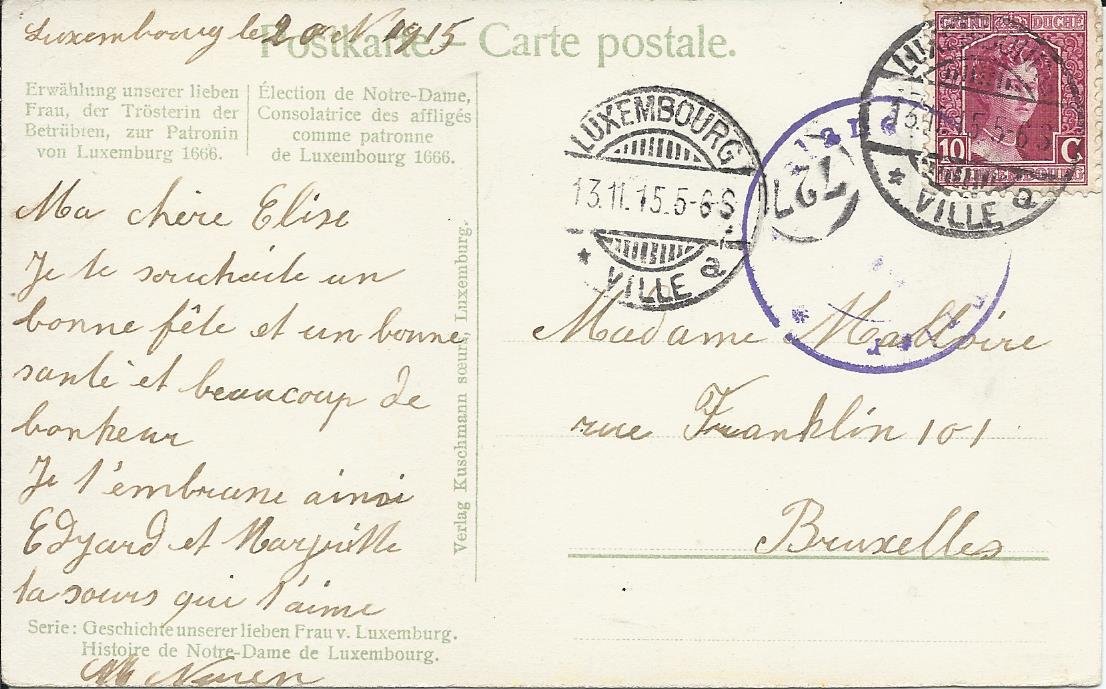 Luxembourg le 20 N 1915
Postkarte – Carte postale.
Erwählung unserer lieben
Frau, der Trösterin der
Betrübten, zur Patronin
von Luxemburg 1666.
Élection de Notre-Dame,
Consolatrice des affligés
comme patronne
de Luxembourg 1666.
Ma chère Elise
Je te souhaite un
bonne fête et un bonne
santé et beaucoup de
bonheur
Je t'embrasse ainsi
Edgard et
ta sœurs qui t'aime
Serie: Geschichte unserer lieben Frau v. Luxemburg.
Histoire de Notre-Dame de Luxembourg.
Verlag Kuschmann sœurs, Luxemburg.
LUXEMBOURG
13.11.15.5-6S
* VILLE a
727
10 C
LUXEMBOURG
5-6S
* VILLE a
Madame
rue Franklin 101
Bruxelles